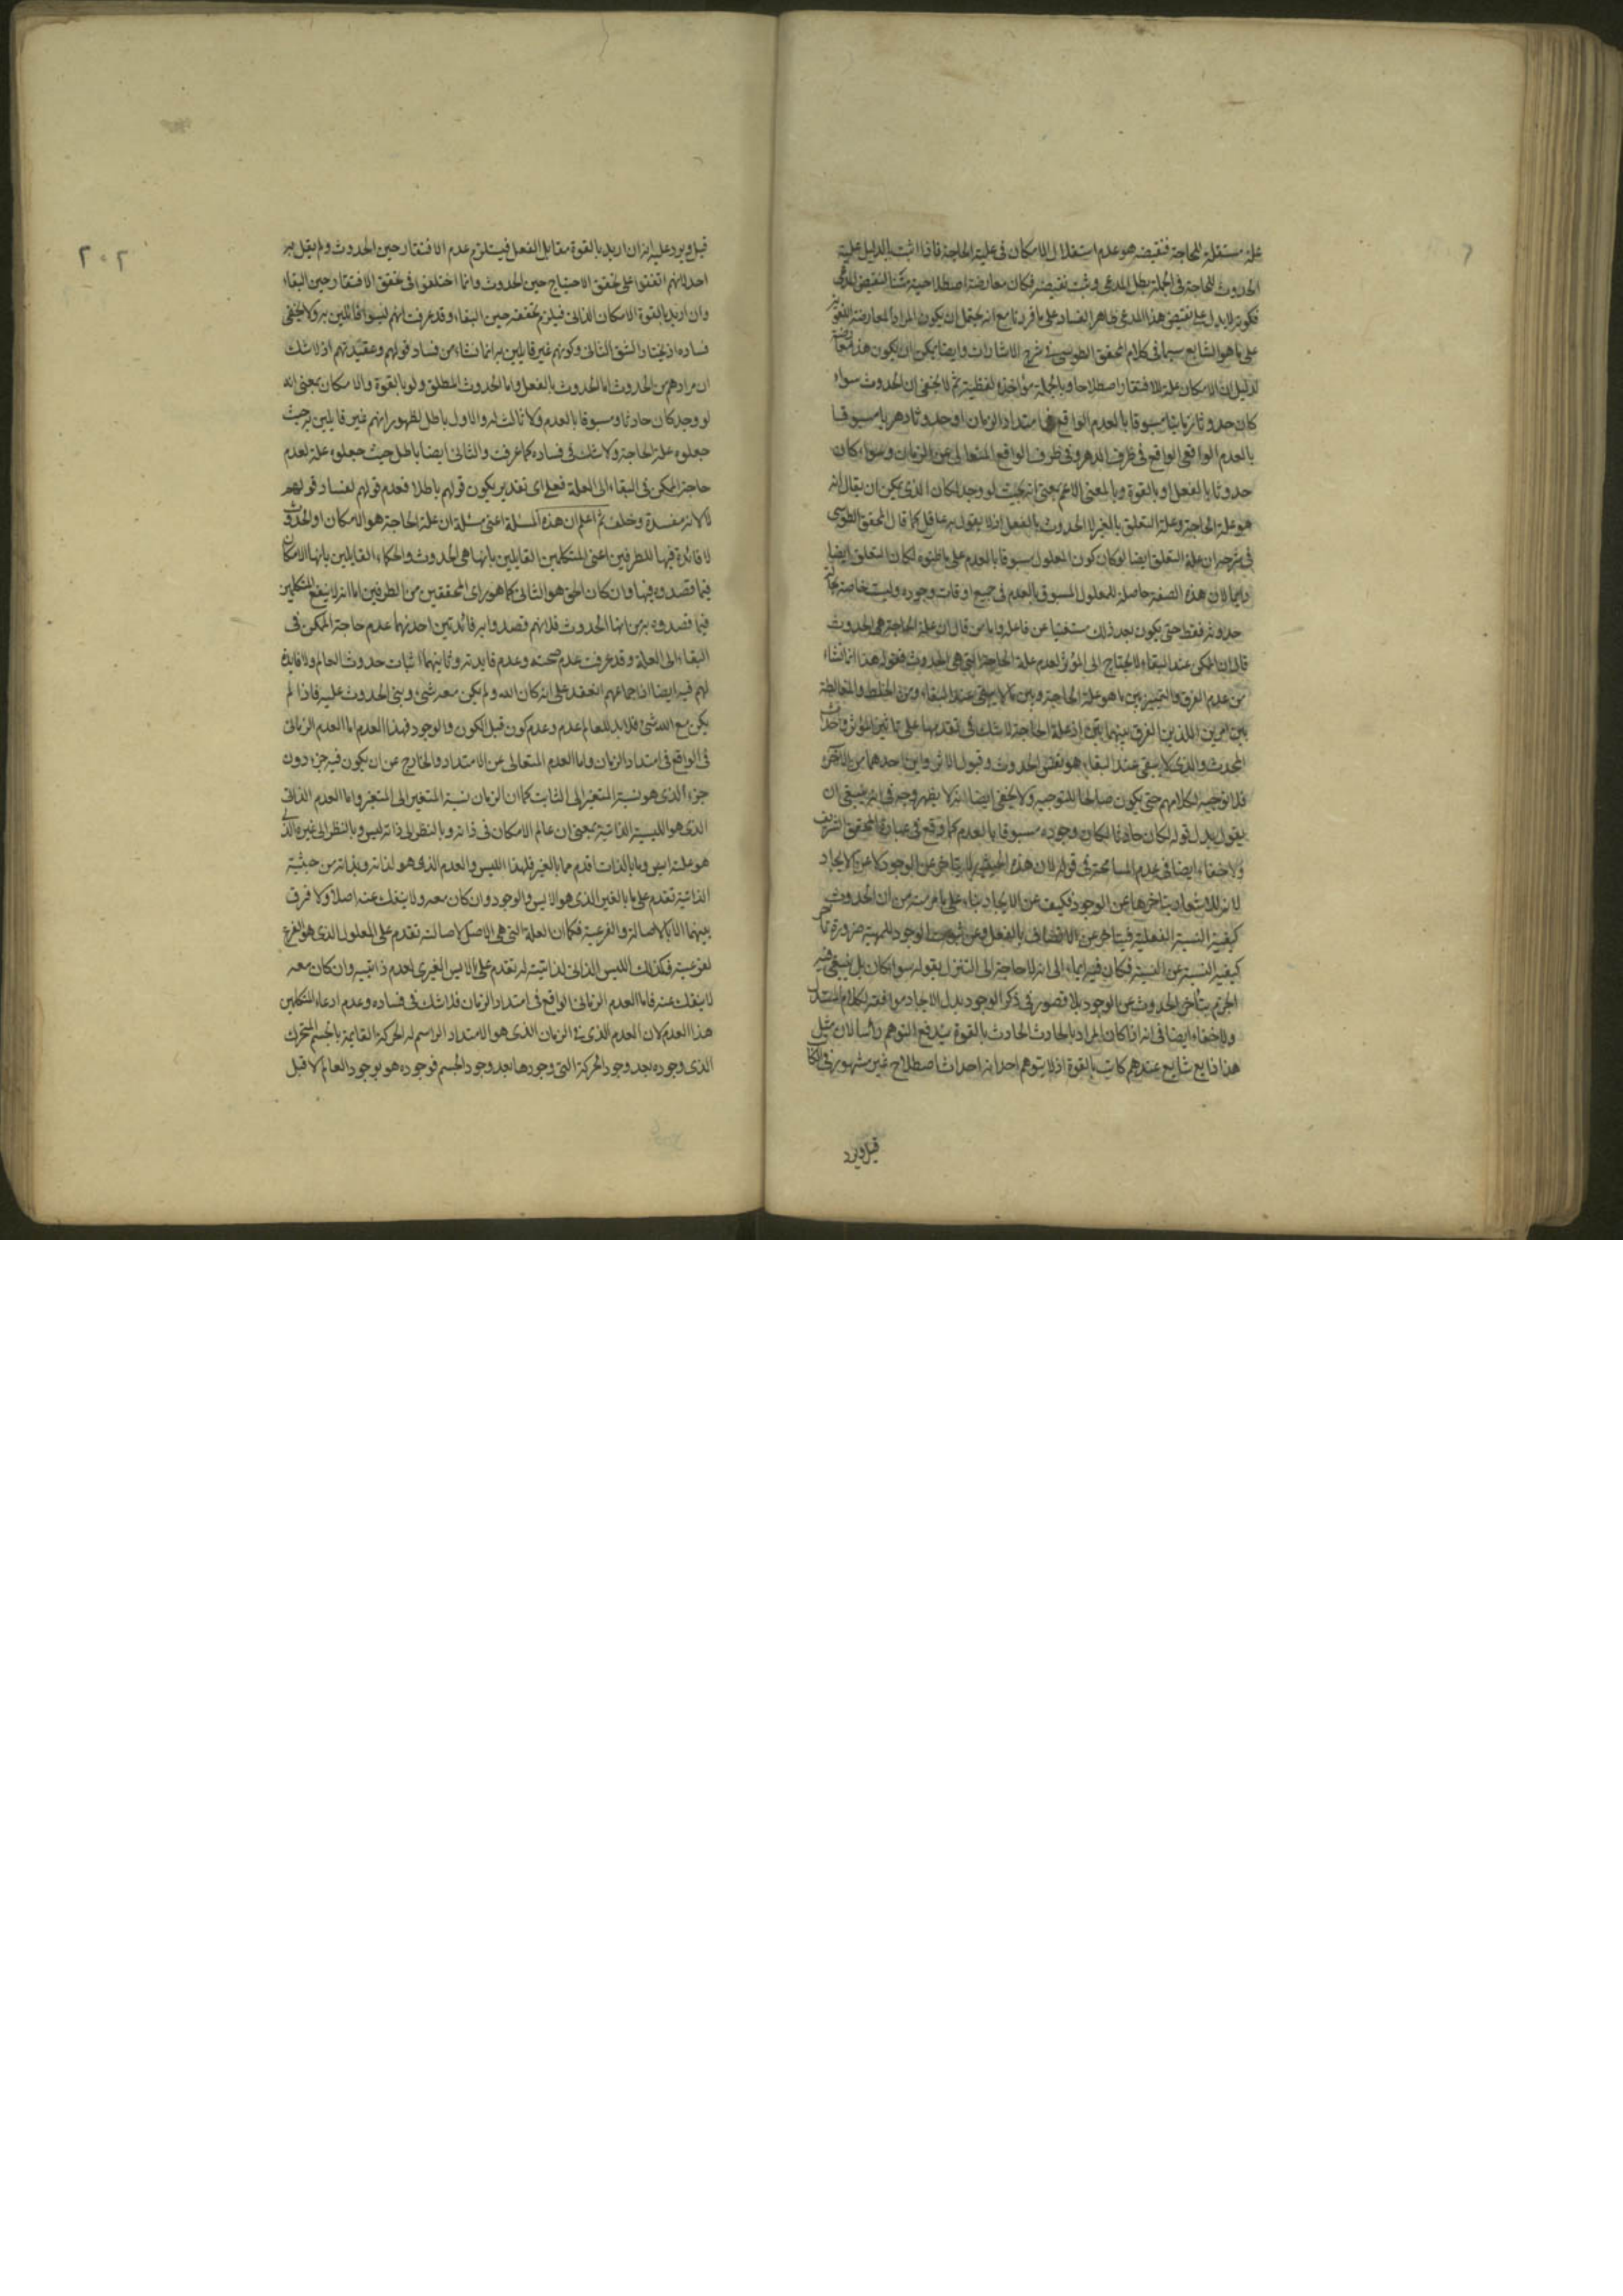 علة مستقلة للحاجة فنقيضه هو عدم استقلال الامكان فى علية الحاجة فاذا اثبت بالدليل علية
الحدوث للحاجة فى الجملة بطل المدعى وثبت نقيضه فكان معارضة اصطلاحية مثبتا لنقيض المدعى
فكونه لا يدل على نقيض هذا المدعى ظاهر الفساد على ما قررنا مع انه يحتمل ان يكون المراد المعارضة اللغوية
على ما هو الشايع سيما فى كلام المحقق الطوسى فى شرح الاشارات وايضا يمكن ان يكون هذا معارضة
لدليل ان الامكان علة للافتقار اصطلاحا وبالجملة مؤاخذة لفظية ثم لا يخفى ان الحدوث سواء
كان حدوثا زمانيا مسبوقا بالعدم الواقع فى امتداد الزمان او حدوثا دهريا مسبوقا
بالعدم الواقعى الواقع فى ظرف الدهر وفى ظرف الواقع المتعالى عن الزمان وسواء كان
حدوثا بالفعل او بالقوة وبالمعنى الاعم بمعنى انه بحيث لو وجد لكان الذى يمكن ان يقال انه
هو علة الحاجة وعلة التعلق بالغير لا الحدوث بالفعل اذ لا يقول به عاقل كما قال المحقق الطوسى
فى شرحه ان علة التعلق ايضا لو كان كون المعلول مسبوقا بالعدم على ما ظنوه لكان التعلق ايضا
دايما لان هذه الصفة حاصلة للمعلول المسبوق بالعدم فى جميع اوقات وجوده وليست خاصة بحالة
حدوثه فقط حتى يكون بعد ذلك مستغنيا عن فاعله واما من قال ان علة الحاجة هى الحدوث
قال ان الممكن عند البقاء لا يحتاج الى المؤثر لعدم علة الحاجة التى هى الحدوث فقوله هذا انما نشاء
من عدم الفرق والتمييز بين ما هو علة الحاجة وبين ما لا يبقى عند البقاء ومن الخلط والمغالطة
بين امرين اللذين الفرق بينهما بين اذ علة الحاجة لا شك فى تقدمها على تاثير المؤثر واحداث
المحدث والذى لا يبقى عند البقاء هو نفس الحدوث وقبول الاثر واين احدهما من الآخر
فلا توجيه لكلامهم حتى يكون صالحا للتوجيه ولا يخفى ايضا انه لا يظهر وجه فى انه ينبغى ان
يقول بدل قوله لكان حادثا لكان وجوده مسبوقا بالعدم كما وقع فى عبارة المحقق الشريف
ولا خفاء ايضا فى عدم المسامحة فى قوله لان هذه الحيثية لا يتاخر عن الوجود كلا عن الايجاد
لانه للاشعار بتاخرها عن الوجود فكيف عن الايجاد بناء على ما مر منه من ان الحدوث
كيفية النسبة الفعلية فيتاخر عن الاتصاف بالفعل وعن ثبوت الوجود للمهية ضرورة تاخر
كيفية النسبة عن النسبة فكان فيه ايماء الى انه لا حاجة الى التنزل بقوله سواء كان بل ينبغى فيه
الجزم بتأخر الحدوث عن الوجود بلا قصور فى ذكر الوجود بدل الايجاد موافقة لكلام المستدل
ولا خفاء ايضا فى انه اذا كان المراد بالحادث الحادث بالقوة يندفع التوهم رأسا لان مثل
هذا ذايع شايع عندهم كاتب بالقوة اذ لا يتوهم احد انه احداث اصطلاح غير مشهور فى الكاتب
قيل ويرد
٢٠٢
قيل ويرد عليه انه ان اريد بالقوة مقابل الفعل فيستلزم عدم الافتقار حين الحدوث ولم يقل به
احد لانهم اتفقوا على تحقق الاحتياج حين الحدوث وانما اختلفوا فى تحقق الافتقار حين البقاء
وان اريد بالقوة الامكان الذاتى فيلزم تحققه حين البقاء وقد عرفت انهم ليسوا قائلين به ولا يخفى
فساده اذ يختار الشق الثانى وكونهم غير قايلين به انما نشاء من فساد قولهم وعقيدتهم اذ لا شك
ان مرادهم من الحدوث اما الحدوث بالفعل واما الحدوث المطلق ولو بالقوة والامكان بمعنى انه
لو وجد كان حادثا ومسبوقا بالعدم ولا ثالث له والاول باطل لظهور انهم غير قايلين به حيث
جعلوه علة الحاجة ولا شك فى فساده كما عرفت والثانى ايضا باطل حيث جعلوه علة لعدم
حاجة الممكن فى البقاء الى العلة فعلى اى تقدير يكون قولهم باطلا فعدم قولهم لفساد قولهم
لا لانه مفسدة وخلف ثم اعلم ان هذه المسئلة اعنى مسئلة ان علة الحاجة هو الامكان او الحدوث
لا فائدة فيها للطرفين اعنى المتكلمين القايلين بانها هى الحدوث والحكماء القايلين بانها الامكان
فيما قصدوه فيها وان كان الحق هو الثانى كما هو راى المحققين من الطرفين اما انه لا ينفع المتكلمين
فيما قصدوه به من انها الحدوث فلانهم قصدوا به فائدتين احديهما عدم حاجة الممكن فى
البقاء الى العلة وقد عرفت عدم صحته وعدم فايدته وثانيتهما اثبات حدوث العالم ولا فايدة
لهم فيه ايضا اذ اجماعهم انعقد على انه كان الله ولم يكن معه شئ وبنى الحدوث عليه فاذا لم
يكن مع الله شئ فلا بد للعالم عدم وعدم كون قبل الكون والوجود فهذا العدم اما العدم الزمانى
فى الواقع فى امتداد الزمان واما العدم المتعالى عن الامتداد والخارج عن ان يكون فيه جزء دون
جزء الذى هو نسبة المتغير الى الثابت كما ان الزمان نسبة المتغير الى المتغير واما العدم الذاتى
الذى هو الليسية الذاتية بمعنى ان عالم الامكان فى ذاته وبالنظر الى ذاته ليس وبالنظر الى غيره الذى
هو علته ايس وما بالذات اقدم مما بالغير فلهذا الليس والعدم الذى هو لذاته وبذاته من حيثية
الذاتية تقدم على ما بالغير الذى هو الايس والوجود وان كان معه ولا ينفك عنه اصلا ولا فرق
بينهما الا بالاصالة والفرعية فكما ان العلة التى هى الاصل لاصالته تقدم على المعلول الذى هو الفرع
لفرعيته فكذلك الليس الذاتى لذاتيته له تقدم على الايس الغيرى لعدم ذاتيته وان كان معه
لا ينفك عنه فاما العدم الزمانى الواقع فى امتداد الزمان فلا شك فى فساده وعدم ادعاء المتكلمين
هذا العدم لان العدم الذى فى الزمان الذى هو الامتداد الراسم له الحركة القايمة بالجسم المتحرك
الذى وجوده بعد وجود الحركة التى وجودها بعد وجود الجسم فوجوده هو بوجود العالم لا قبل